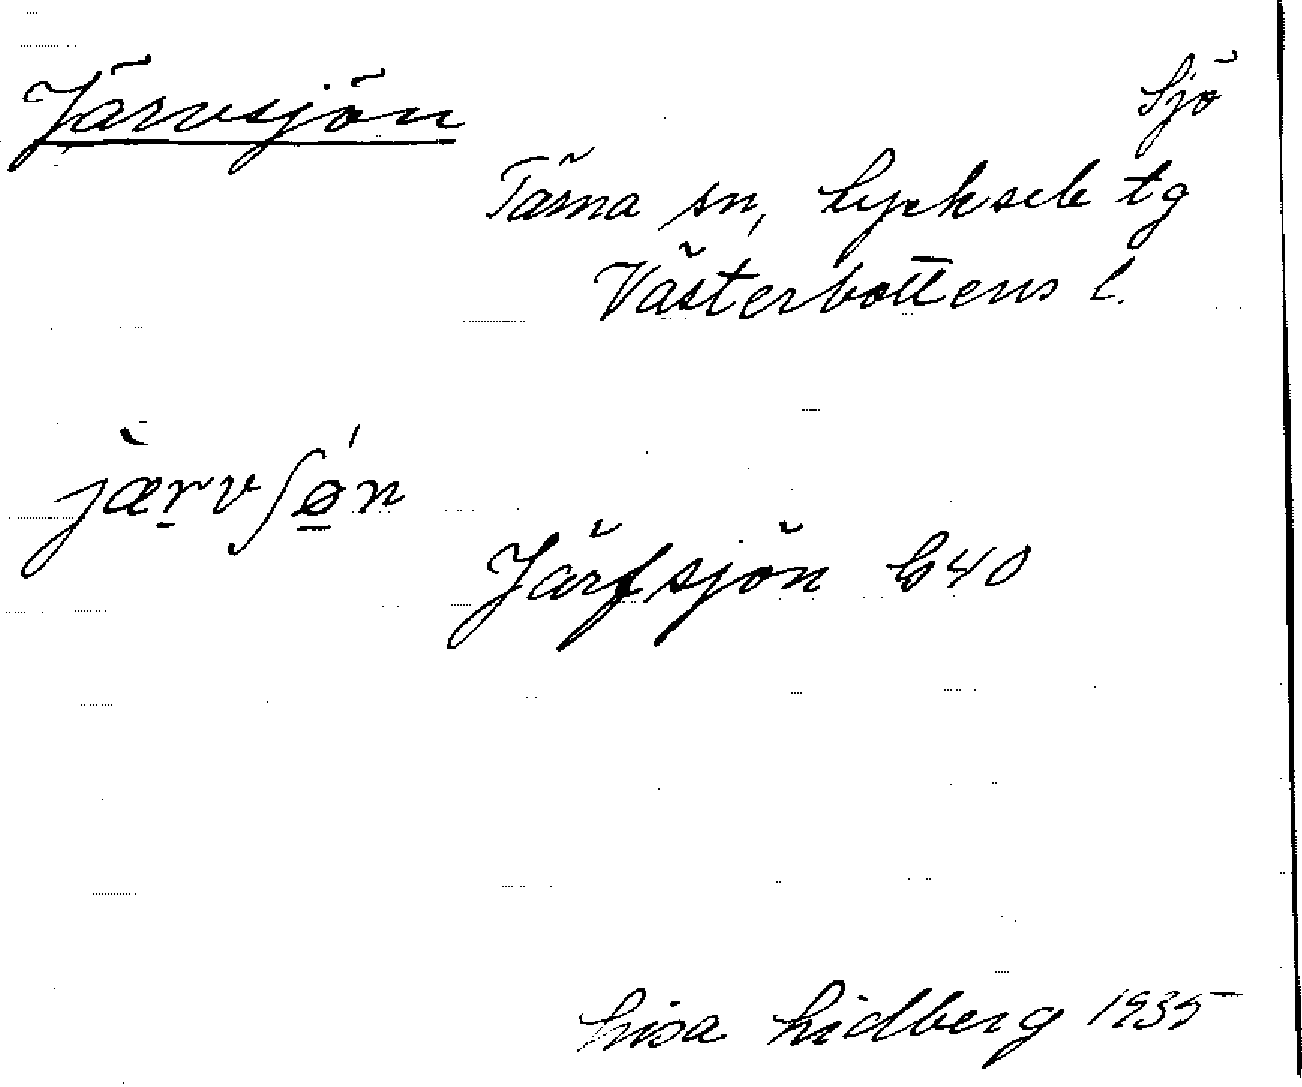 Järvsjön
Sjö
Tärna sn, Lycksele tg
Västerbottens l.
jæ̀rvʃǿn
Järfsjön G40
Lisa Lidberg 1935